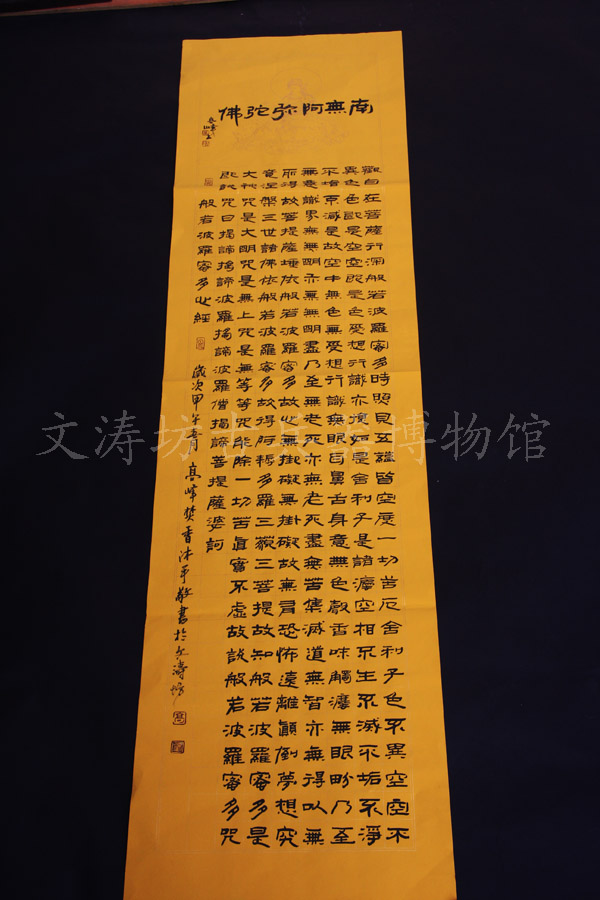 南無阿弥陀佛
觀自在菩薩行深般若波羅蜜多時照見五蘊皆空度一切苦厄舍利子色不異空空不
異色色即是空空即是色受想行識亦復如是舍利子是諸灋空相不生不滅不垢不淨
不增不減是故空中無色無受想行識無眼耳鼻舌身意無色聲香味觸灋無眼界乃至
無意識界無無明亦無無明盡乃至無老死亦無老死盡無苦集滅道無智亦無得以無
所得故菩提薩埵依般若波羅蜜多故心無掛礙無掛礙故無有恐怖遠離顛倒夢想究
竟涅槃三世諸佛依般若波羅蜜多故得阿耨多羅三藐三菩提故知般若波羅蜜多是
大神咒是大明咒是無上咒是無等等咒能除一切苦真實不虛故說般若波羅蜜多咒
即說咒曰揭諦揭諦波羅揭諦波羅僧揭諦菩提薩婆訶
般若波羅蜜多心經
歲次甲午春月高峰焚香沐手敬書於文濤坊
文涛坊古兵器博物馆